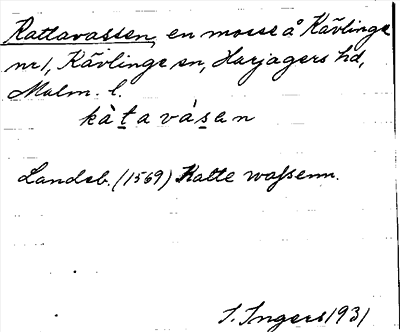 Kattavassen, en mosse å Kävlinge
nr 1, Kävlinge sn, Harjagers hd,
Malm. l.
kàt a vá s a n
Landsb. (1569) Katte wassenn.
I. Ingers 1931